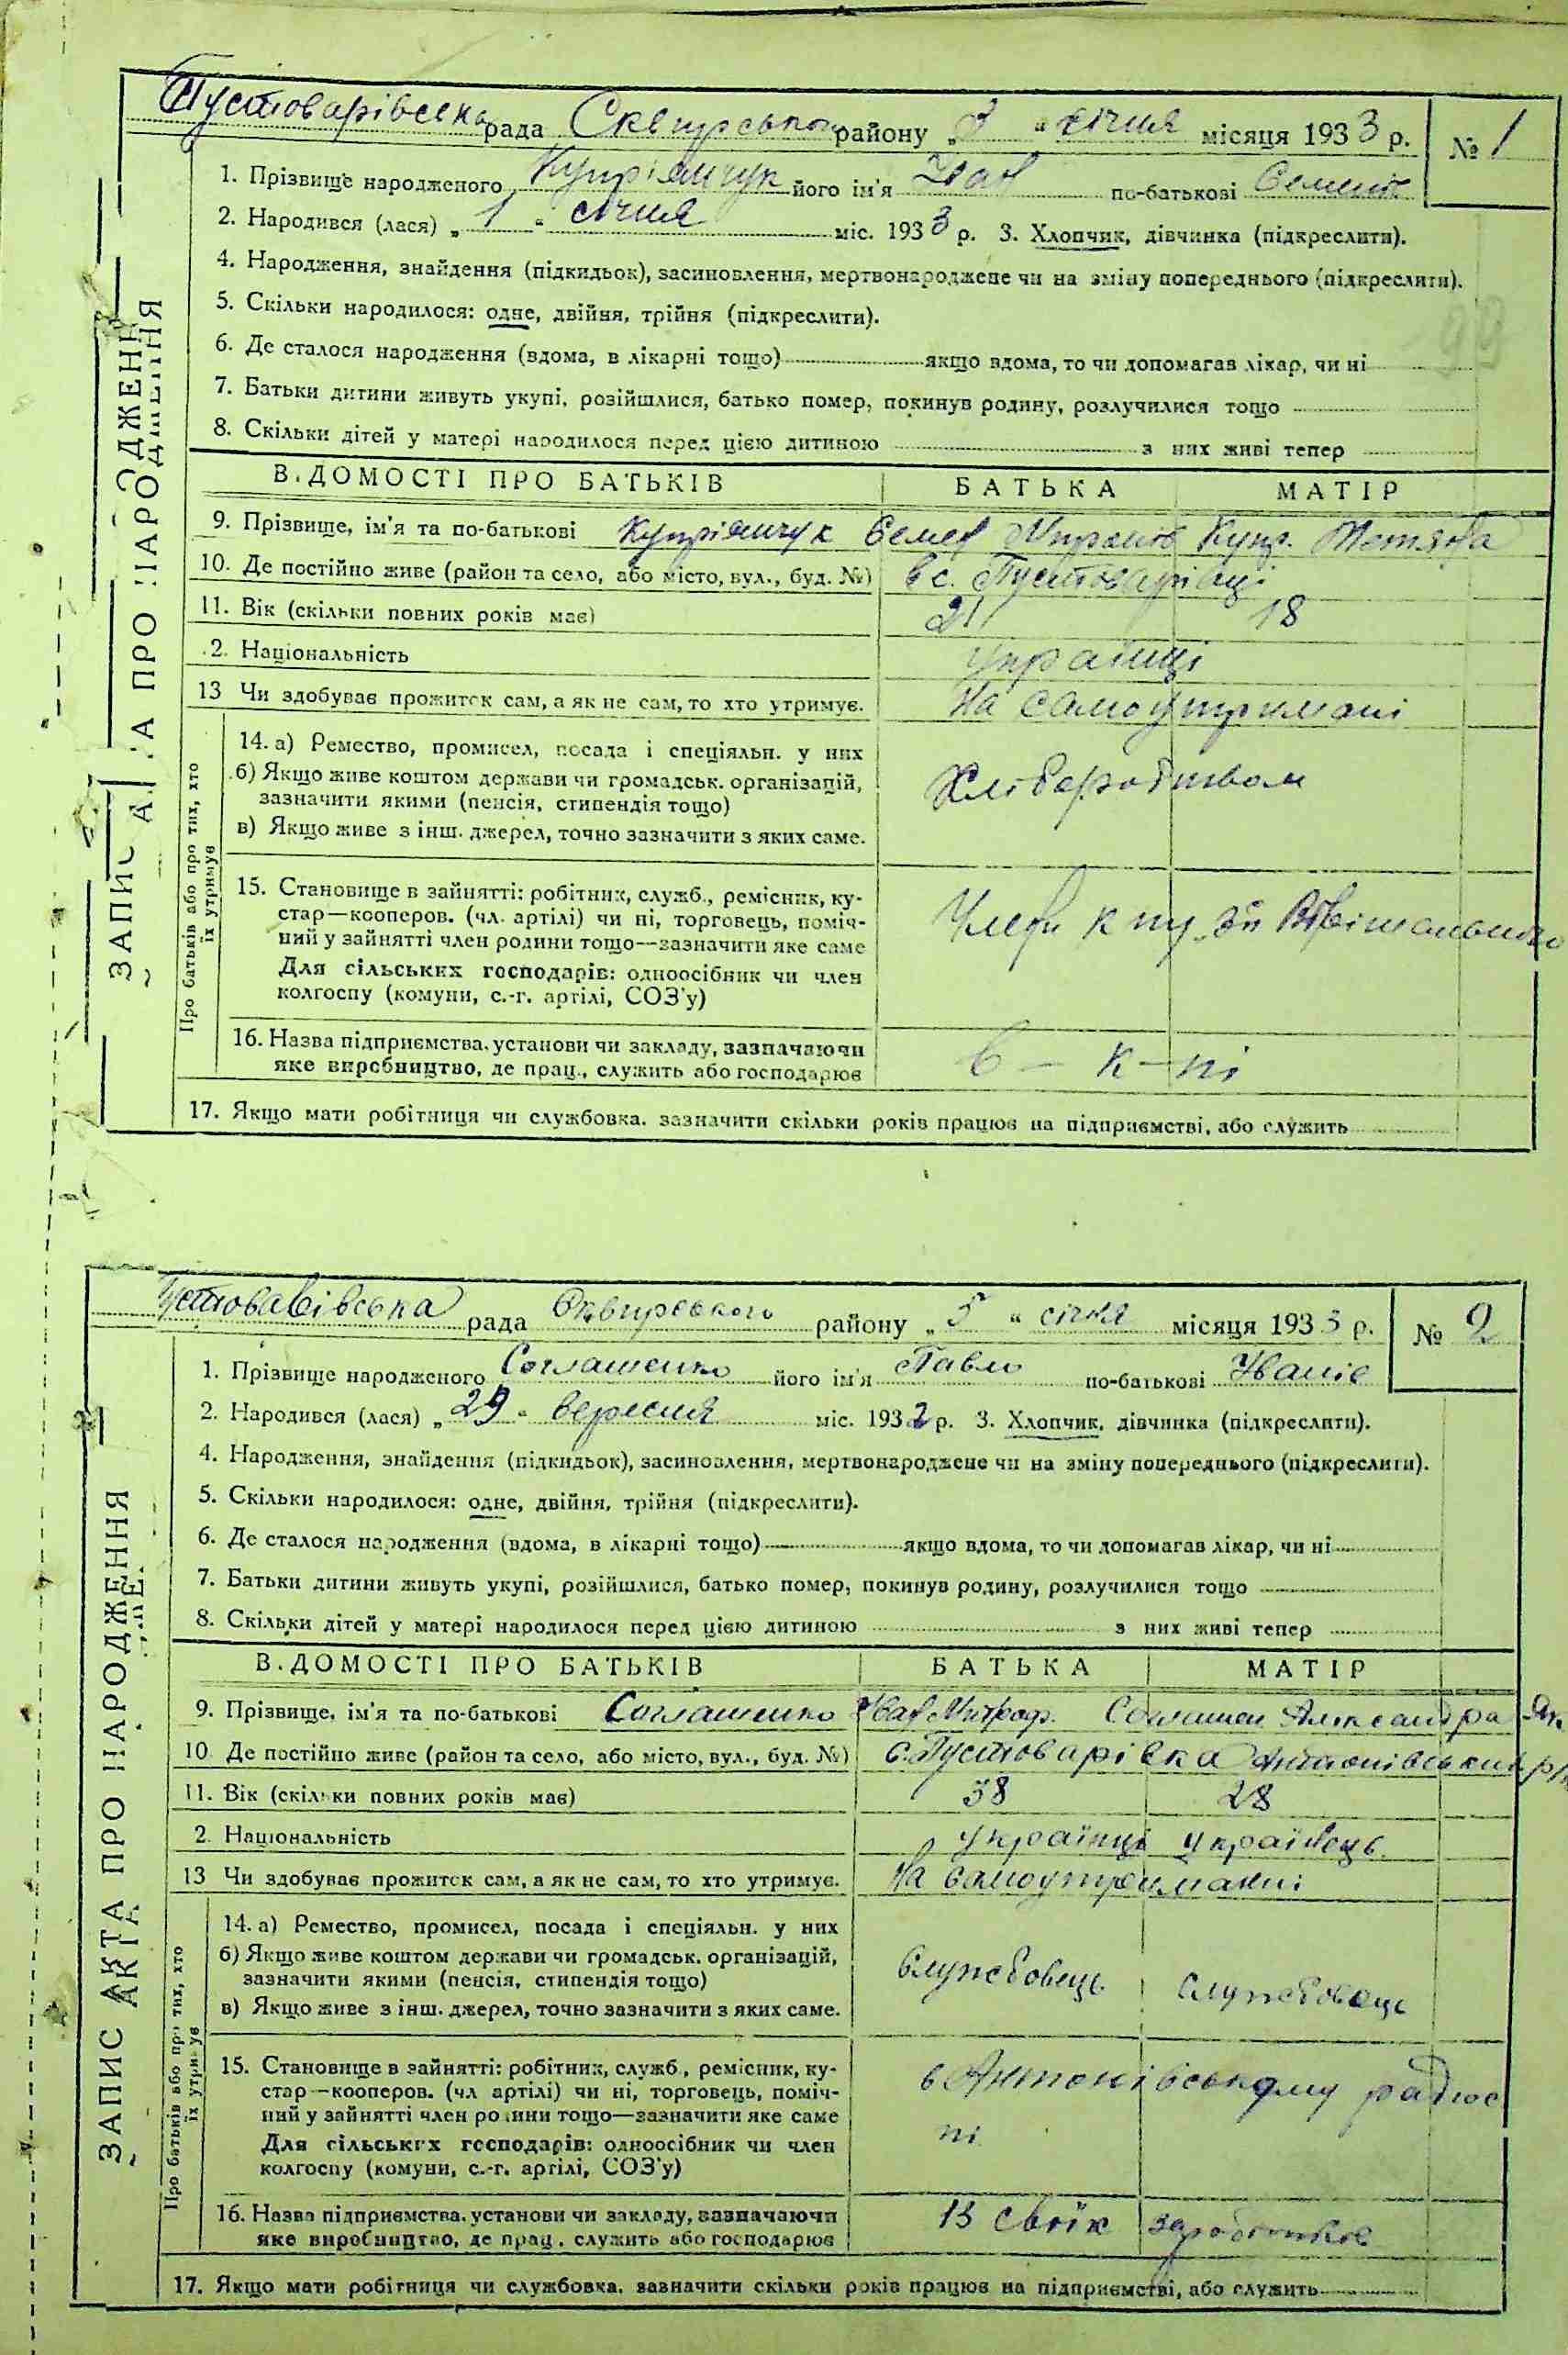 Пустоварівська рада Сквирського району „3“ січня місяця 1933 р. № 1
1. Прізвище народженого Купріянчук його ім'я Іван по-батькові Семенів
2. Народився (лася) „1“ січня міс. 1933 р. 3. Хлопчик, дівчинка (підкреслити).
4. Народження, знайдення (підкидьок), засиновлення, мертвонароджене чи на зміну попереднього (підкреслити).
5. Скільки народилося: одне, двійня, трійня (підкреслити).
6. Де сталося народження (вдома, в лікарні тощо) якщо вдома, то чи допомагав лікар, чи ні
7. Батьки дитини живуть укупі, розійшлися, батько помер, покинув родину, розлучилися тощо
8. Скільки дітей у матері народилося перед цією дитиною з них живі тепер
ЗАПИС АКТА ПРО НАРОДЖЕННЯ
В.ДОМОСТІ ПРО БАТЬКІВ БАТЬКА МАТІР
9. Прізвище, ім'я та по-батькові Купріянчук Семен Купр. Тетяна
10. Де постійно живе (район та село, або місто, вул., буд. №) в с. Пустоварівці
11. Вік (скільки повних років має) 21 18
2. Національність Українці
13 Чи здобуває прожиток сам, а як не сам, то хто утримує. На самоутримані
Про батьків або про тих, хто їх утримує
14. а) Ремество, промисел, посада і спеціяльн. у них
б) Якщо живе коштом держави чи громадськ. організацій, Хліборобством
зазначити якими (пенсія, стипендія тощо)
в) Якщо живе з інш. джерел, точно зазначити з яких саме.
15. Становище в зайнятті: робітник, служб., ремісник, ку-
стар—кооперов. (чл. артілі) чи ні, торговець, поміч- Члени
ний у зайнятті член родини тощо—зазначити яке саме
Для сільських господарів: одноосібник чи член
колгоспу (комуни, с.-г. артілі, СОЗ'у)
16. Назва підприємства, установи чи закладу, зазначаючи в – к-пі
яке виробництво, де прац., служить або господарює
17. Якщо мати робітниця чи службовка, зазначити скільки років працює на підприємстві, або служить
Пустоварівська рада Сквирського району „5“ січня місяця 1933 р. № 2
1. Прізвище народженого Соглашенко його ім'я Павло по-батькові Іванів
2. Народився (лася) „29“ вересня міс. 1932 р. 3. Хлопчик, дівчинка (підкреслити).
4. Народження, знайдення (підкидьок), засиновлення, мертвонароджене чи на зміну попереднього (підкреслити).
5. Скільки народилося: одне, двійня, трійня (підкреслити).
6. Де сталося народження (вдома, в лікарні тощо) якщо вдома, то чи допомагав лікар, чи ні
7. Батьки дитини живуть укупі, розійшлися, батько помер, покинув родину, розлучилися тощо
8. Скільки дітей у матері народилося перед цією дитиною з них живі тепер
ЗАПИС АКТА ПРО НАРОДЖЕННЯ
В.ДОМОСТІ ПРО БАТЬКІВ БАТЬКА МАТІР
9. Прізвище, ім'я та по-батькові Соглашенко Іван Митроф. Александра Як
10 Де постійно живе (район та село, або місто, вул., буд. №) с. Пустоварівка Антонівський р/н
11. Вік (скільки повних років має) 38 28
2. Національність українці українець
13 Чи здобуває прожиток сам, а як не сам, то хто утримує. На самоутриманні
Про батьків або про тих, хто їх утримує
14. а) Ремество, промисел, посада і спеціяльн. у них
б) Якщо живе коштом держави чи громадськ. організацій, Службовець Службовець
зазначити якими (пенсія, стипендія тощо)
в) Якщо живе з інш. джерел, точно зазначити з яких саме.
15. Становище в зайнятті: робітник, служб., ремісник, ку- в Антонівському радгос
стар—кооперов. (чл артілі) чи ні, торговець, поміч-
ний у зайнятті член родини тощо—зазначити яке саме пі
Для сільських господарів: одноосібник чи член
колгоспу (комуни, с.-г. артілі, СОЗ'у)
16. Назва підприємства, установи чи закладу, зазначаючи Із своїх заробітків
яке виробництво, де прац., служить або господарює
17. Якщо мати робітниця чи службовка, зазначити скільки років працює на підприємстві, або служить